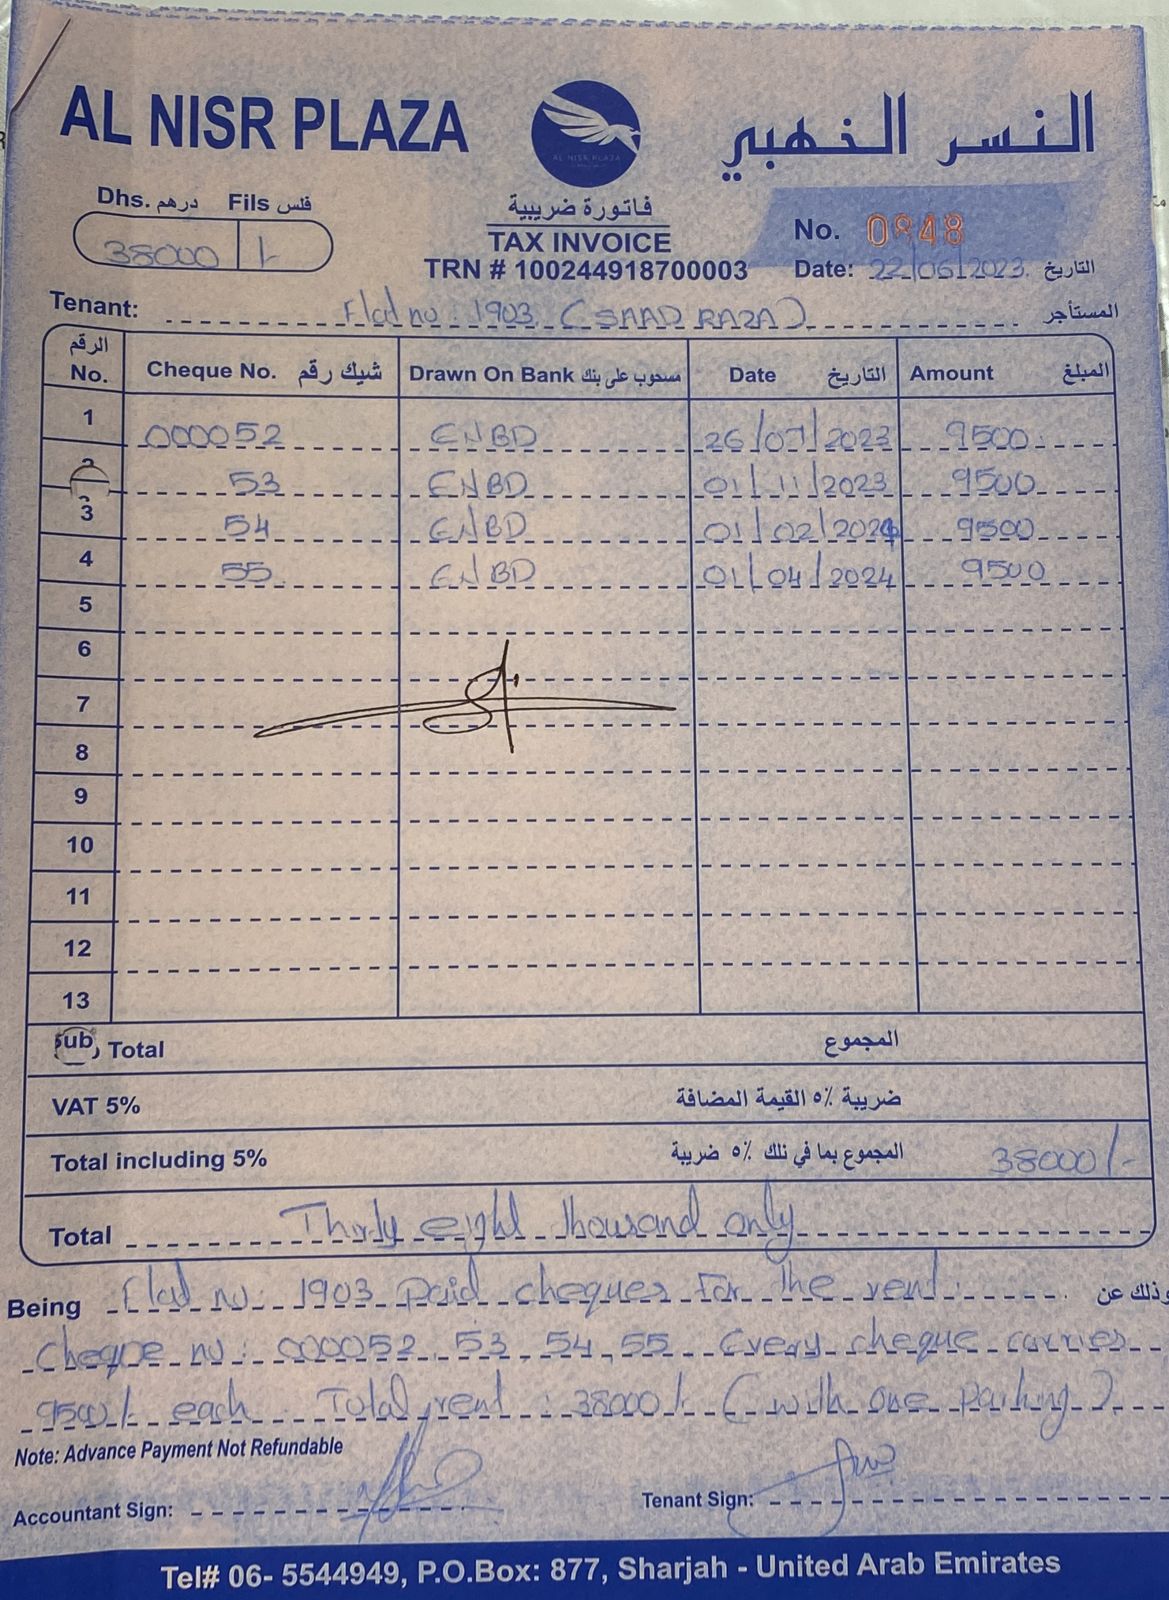 AL NISR PLAZA
AL NISR PLAZA
النسر الخهبي
Dhs. درهم Fils فلس
38000 /-
فاتورة ضريبية
TAX INVOICE
TRN # 100244918700003
No. 0848
Date: 22/06/2023. التاريخ
Tenant: Flat no : 1903 (SAAD RAZA) المستأجر
الرقم
No. Cheque No. شيك رقم Drawn On Bank مسحوب على بنك Date التاريخ Amount المبلغ
1 000052 ENBD 26/07/2023 9500
2 53 ENBD 01/11/2023 9500
3 54 ENBD 01/02/2024 9500
4 55 ENBD 01/04/2024 9500
5
6
7
8
9
10
11
12
13
Sub Total المجموع
VAT 5% ضريبة ٥٪ القيمة المضافة
Total including 5% المجموع بما في ذلك ٥٪ ضريبة 38000/-
Total Thirty eight thousand only
Being Flat no : 1903 paid cheques for the rent. وذلك عن
Cheque no : 000052, 53, 54, 55 Every cheque carries
9500/- each. Total rent : 38000/- (with one parking).
Note: Advance Payment Not Refundable
Accountant Sign: Tenant Sign:
Tel# 06- 5544949, P.O.Box: 877, Sharjah - United Arab Emirates